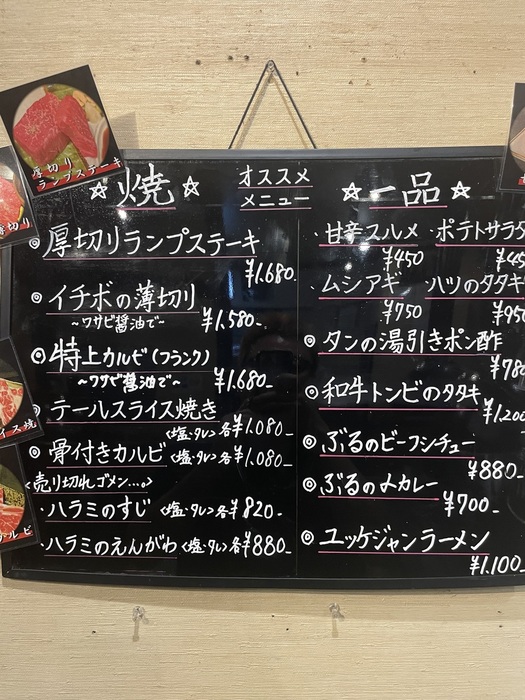 厚切り
ランプステーキ
厚切り
イス焼
ルビ
☆焼☆
オススメ
メニュー
◎厚切りランプステーキ
¥1.680-
◎イチボの薄切り
~ワサビ醤油で~ ¥1,580-
◎特上カルビ(フランク)
~ワサビ醤油で~ ¥1.680-
◎テールスライス焼き
<塩・タレ>各¥1.080-
◎骨付きカルビ <塩・タレ>各¥1.080-
<売り切れゴメン...。>
・ハラミのすじ <塩・タレ>各¥820-
・ハラミのえんがわ <塩・タレ>各¥880-
☆一品☆
・甘辛スルメ ・ポテトサラダ
¥450 ¥45
・ムシアギ ・ハツのタタキ
¥750 ¥950
◎タンの湯引きポン酢
¥780
◎和牛トンビのタタキ
¥1,200
◎ぶるのビーフシチュー
¥880-
◎ぶるのメカレー
¥700-
◎ユッケジャンラーメン
¥1.100-